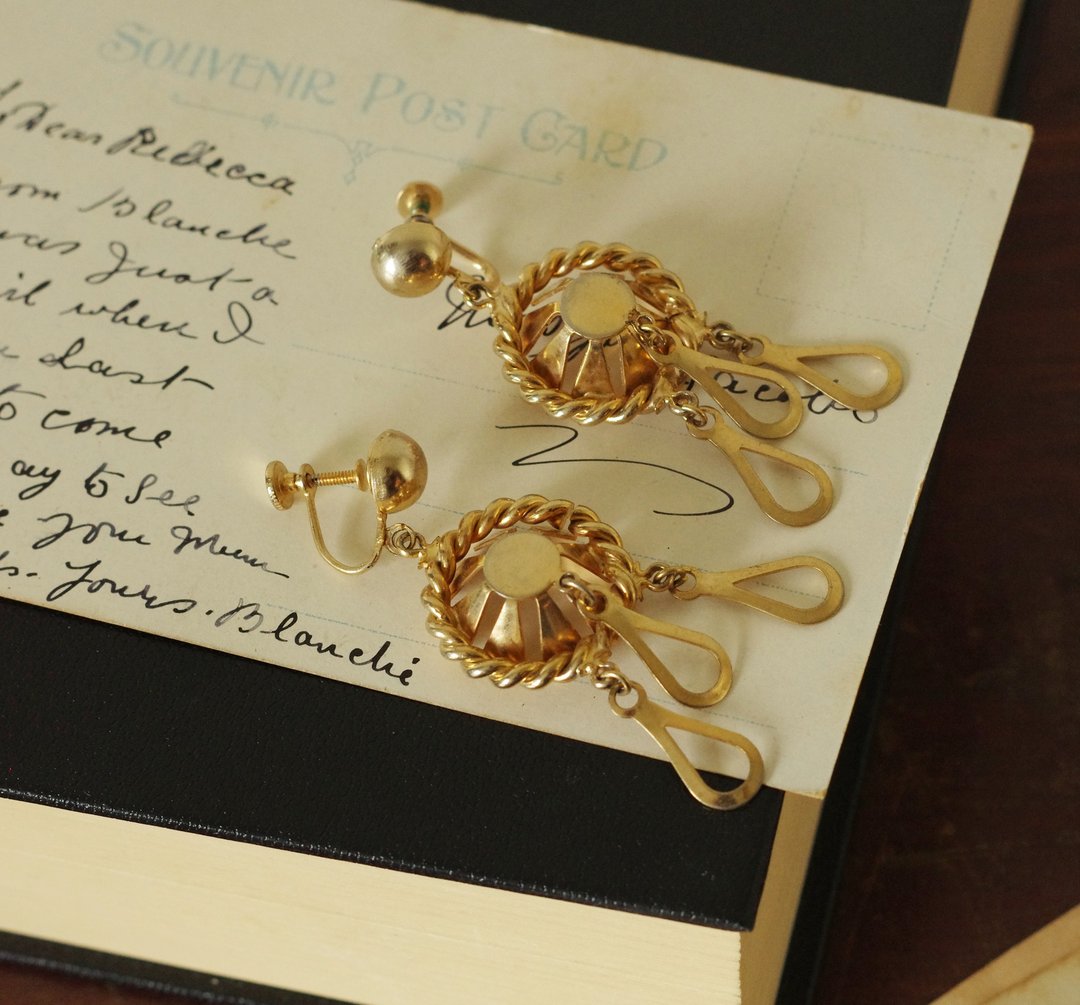 SOUVENIR POST CARD
Dear Rebecca
Blanche
was Just a
when I
Last
to come
ay to See
your Mum
Yours. Blanche